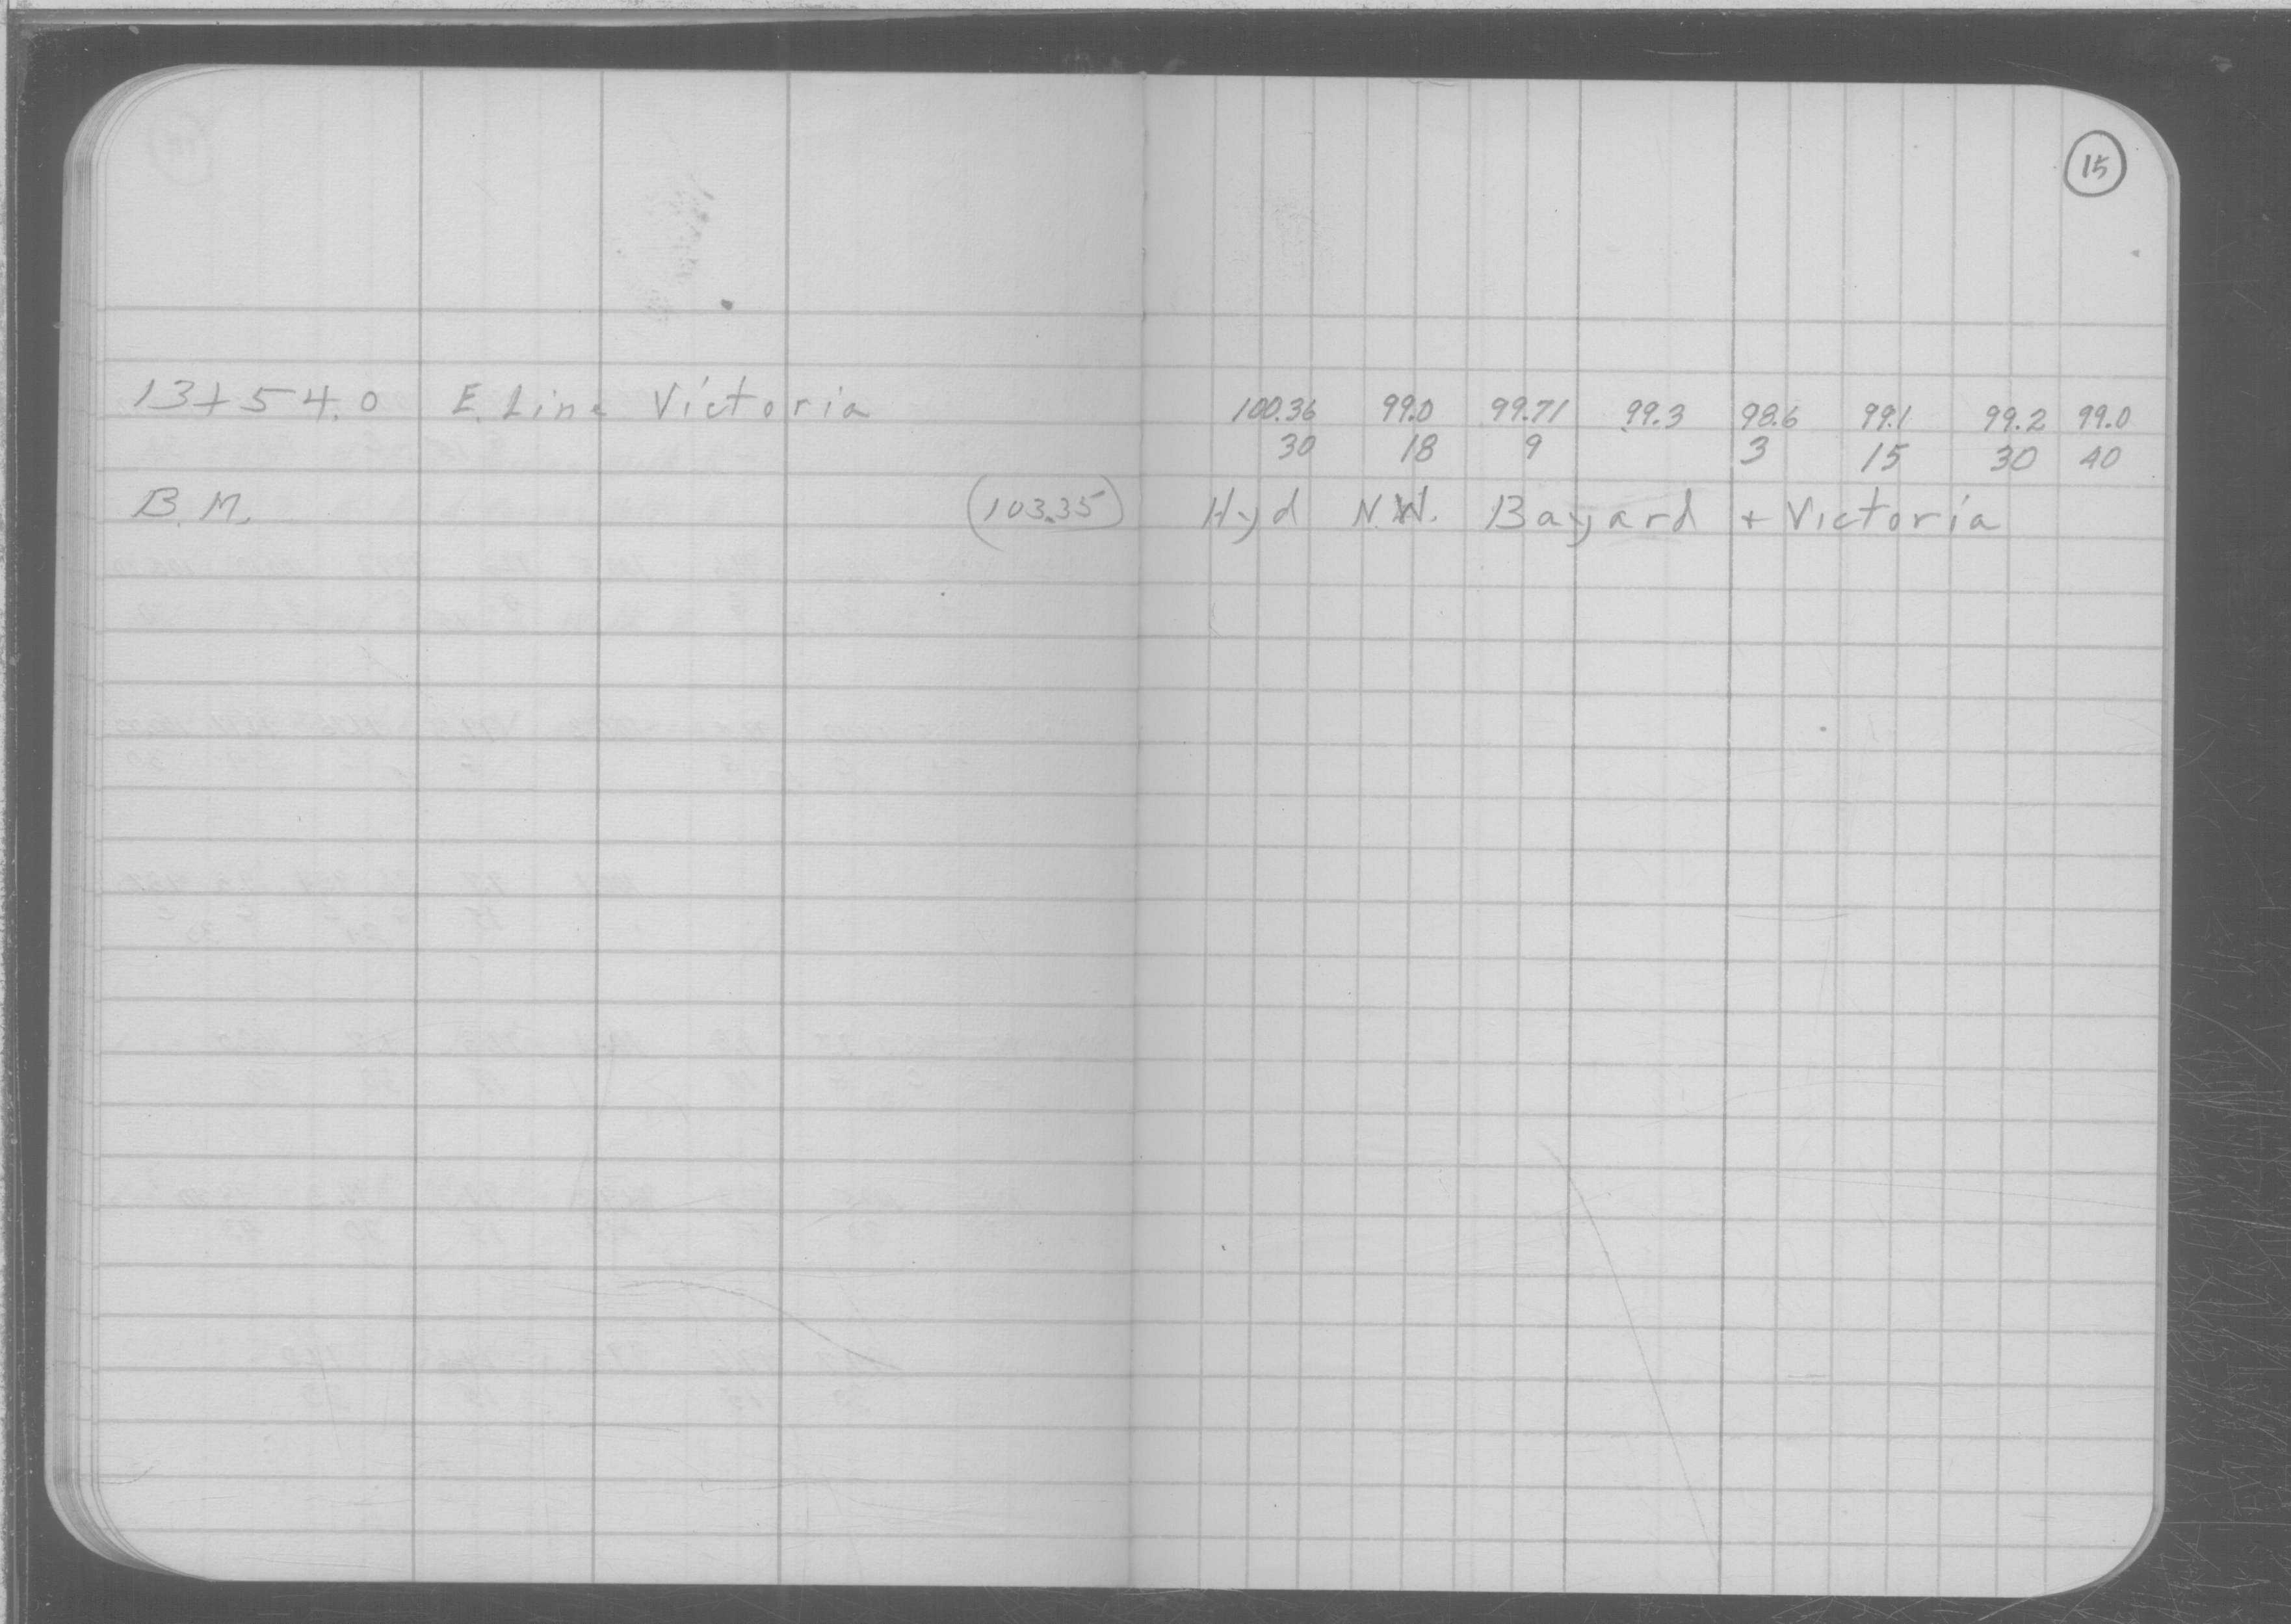 15
13+54.0 E. Line Victoria 100.36 99.0 99.71 99.3 98.6 99.1 99.2 99.0
30 18 9 3 15 30 40
B.M. (103.35) Hyd N.W. Bayard + Victoria